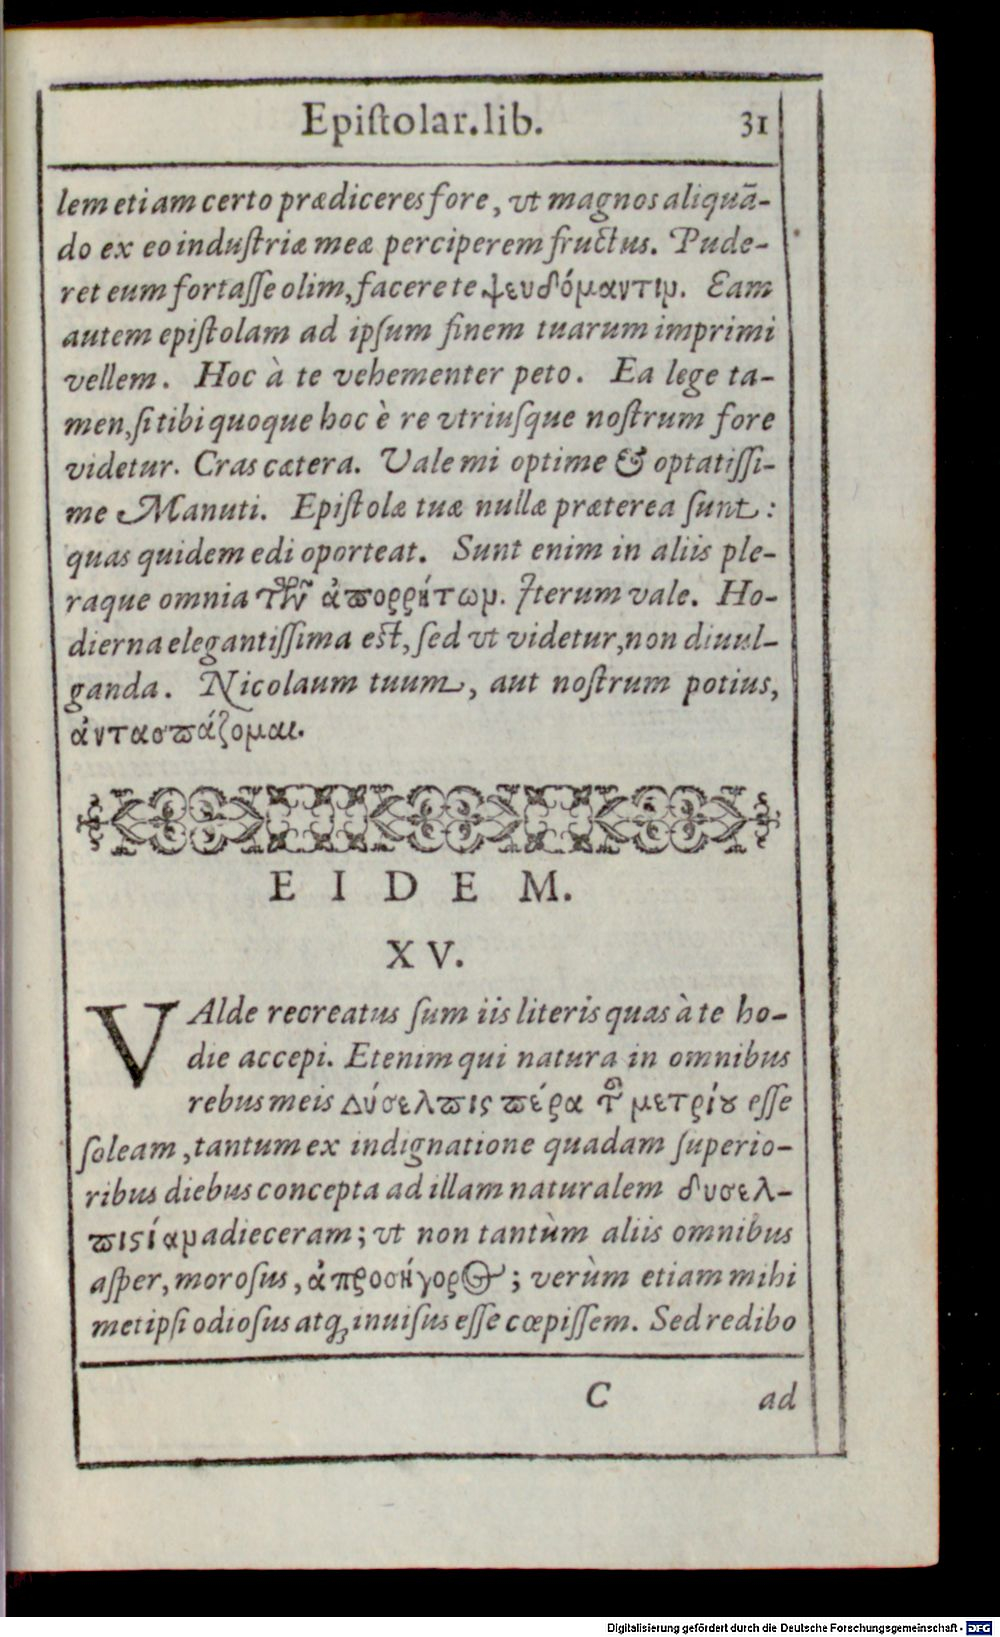 Epiſtolar.lib. 31
lem etiam certo prædiceres fore, vt magnos aliquā-
do ex eo induſtriæ meæ perciperem fructus. Pude-
ret eum fortaſſe olim, facere te ψευδόμαντιν. Eam
autem epiſtolam ad ipſum finem tuarum imprimi
vellem. Hoc à te vehementer peto. Ea lege ta-
men, ſi tibi quoque hoc è re vtriuſque noſtrum fore
videtur. Cras cætera. Vale mi optime & optatiſſi-
me Manuti. Epiſtolæ tuæ nullæ præterea ſunt:
quas quidem edi oporteat. Sunt enim in aliis ple-
raque omnia τῶν ἀποῤῥήτων. Iterum vale. Ho-
dierna elegantiſſima eſt, ſed vt videtur, non diuul-
ganda. Nicolaum tuum, aut noſtrum potius,
ἀντασπάζομαι.
EIDEM.
XV.
VAlde recreatus ſum iis literis quas à te ho-
die accepi. Etenim qui natura in omnibus
rebus meis δύσελπις πέρα τοῦ μετρίου eſſe
ſoleam, tantum ex indignatione quadam ſuperio-
ribus diebus concepta ad illam naturalem δυσελ-
πιςίαν adieceram; vt non tantùm aliis omnibus
aſper, moroſus, ἀπροσήγορος; verùm etiam mihi
metipſi odioſus atq; inuiſus eſſe cœpiſſem. Sed redibo
C ad
Digitalisierung gefördert durch die Deutsche Forschungsgemeinschaft - DFG